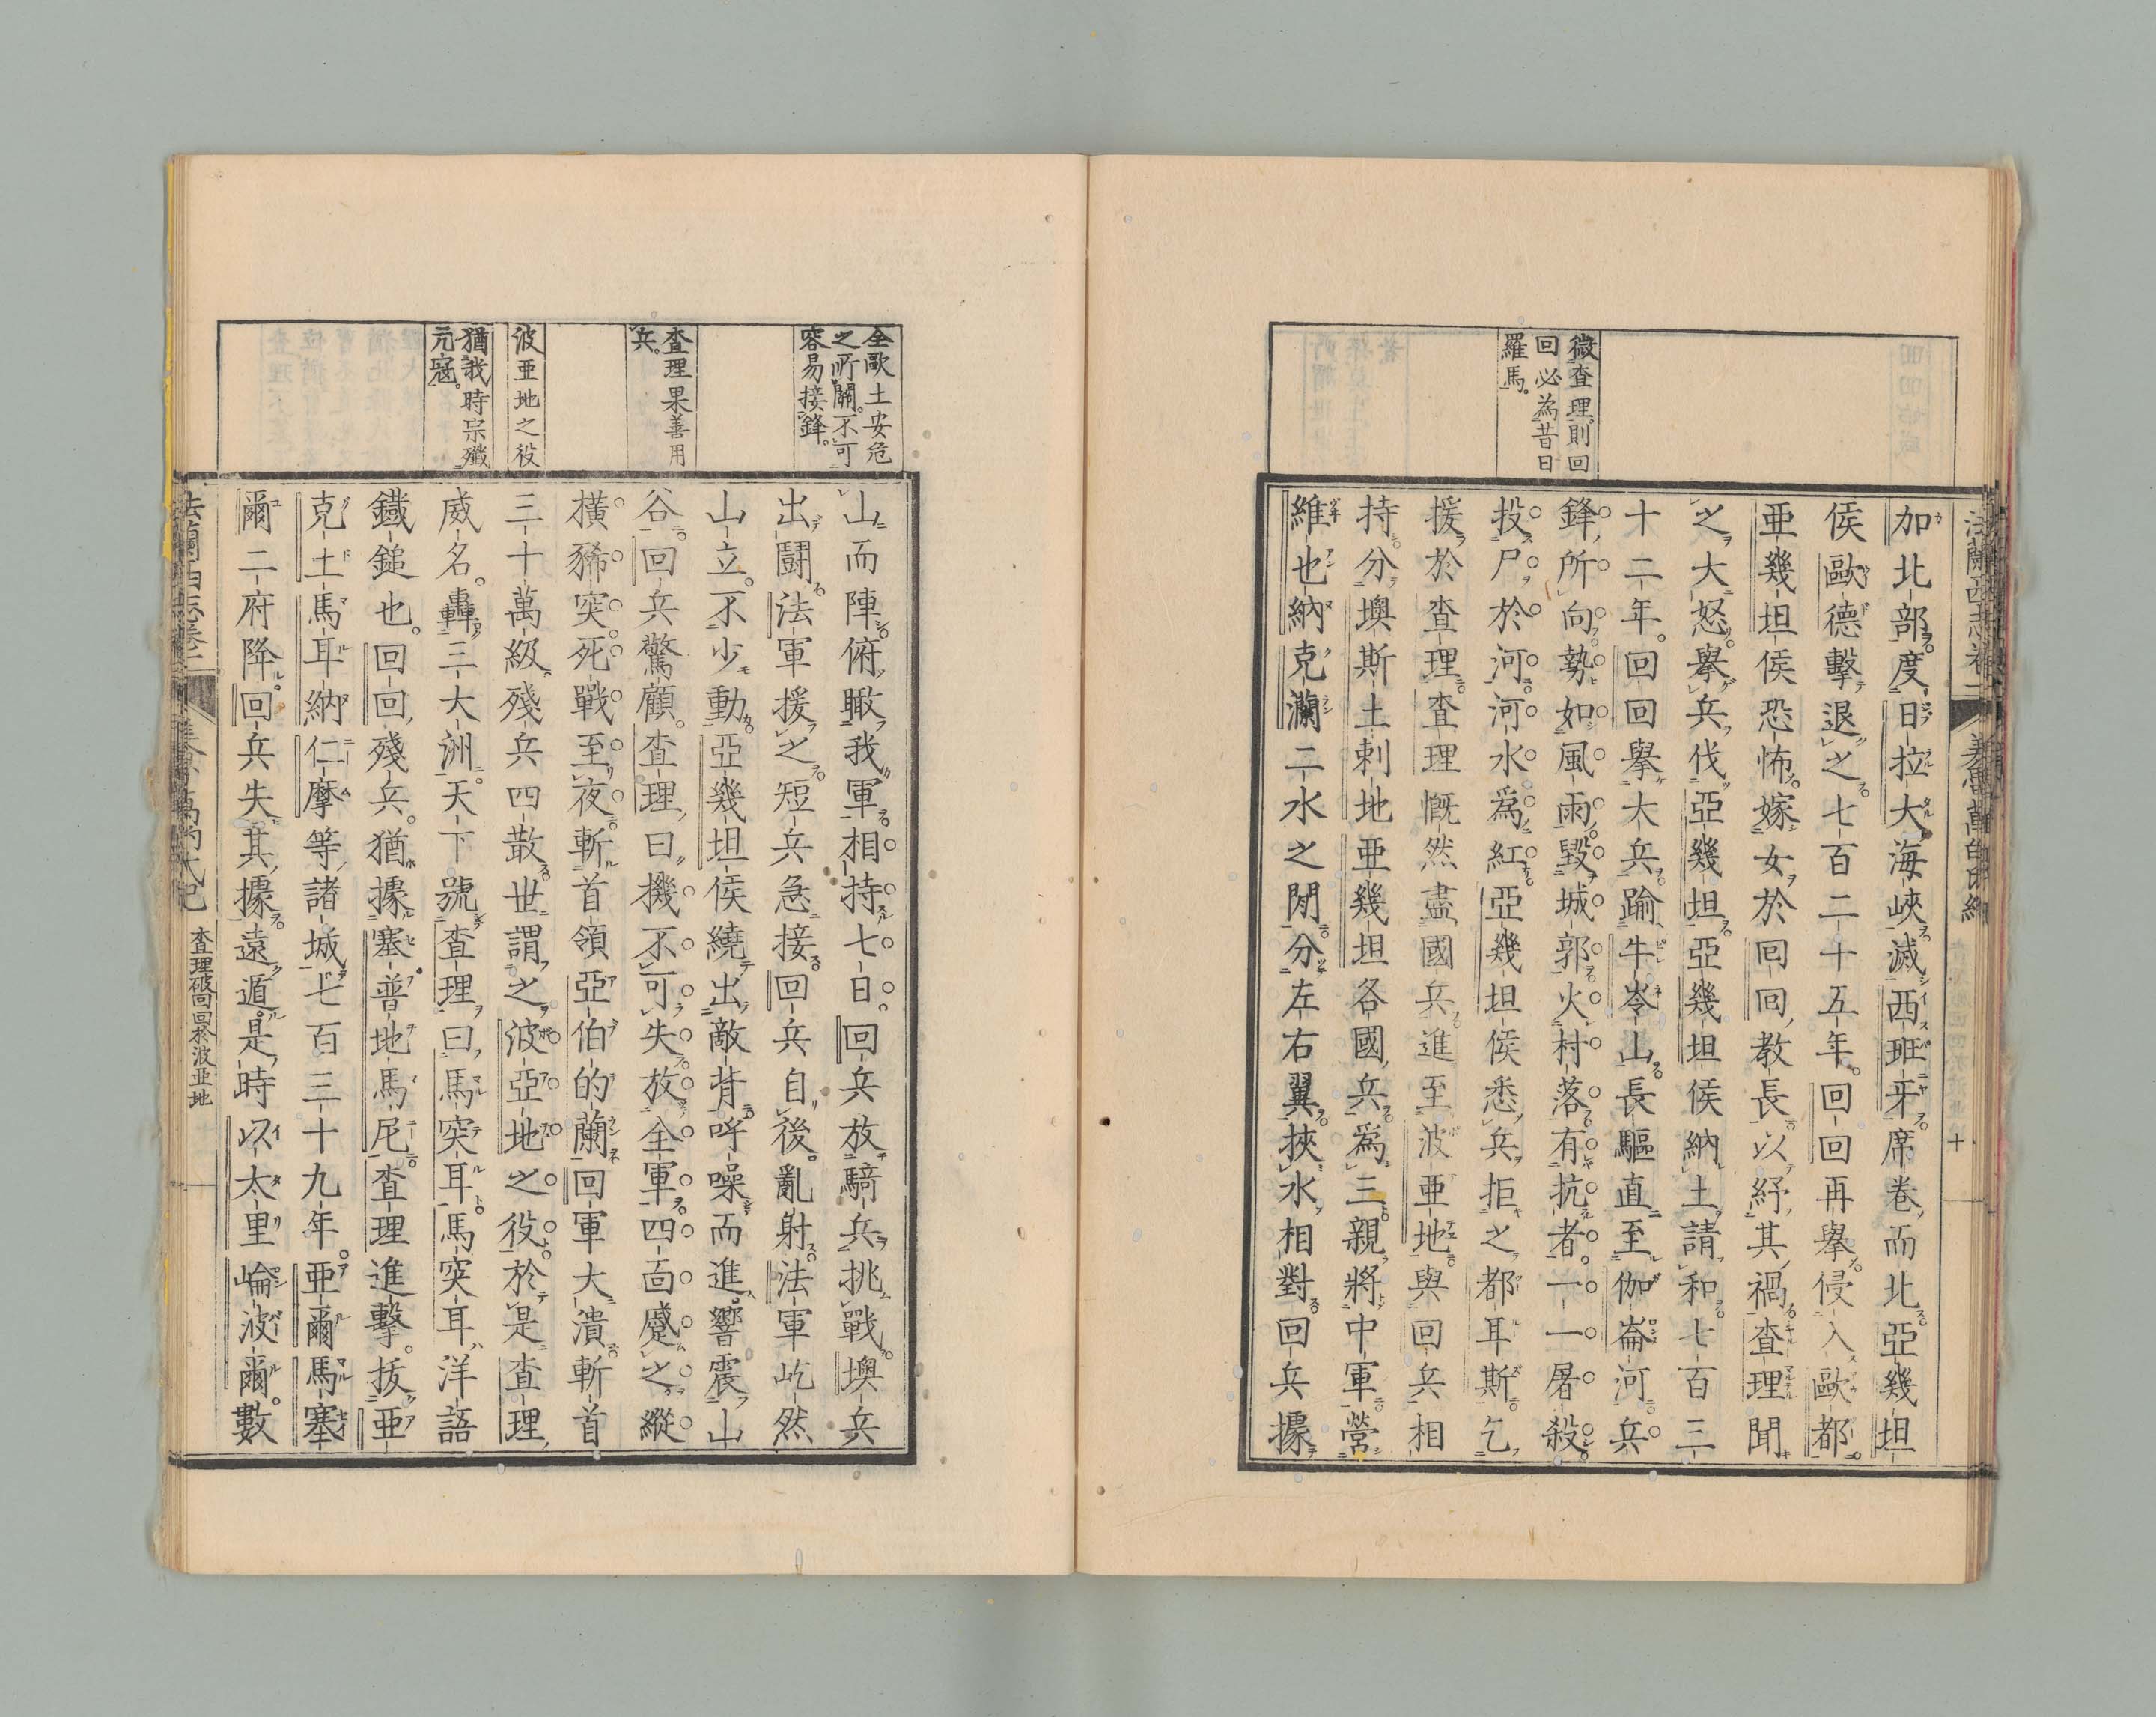 微査理則回
回必為昔日
羅馬。
加北部度日拉大海峽滅西班牙席卷而北亞幾坦
侯歐德擊退之七百二十五年。回回再擧侵入歐都
亞幾坦侯恐怖嫁女於回回教長以紓其禍査理聞
之大怒擧兵伐亞幾坦亞幾坦侯納土請和七百三
十二年。回回擧大兵踰牛岺山長驅直至伽崙河兵
鋒所向勢如風雨毀城郭火村落有抗者。一一屠殺
投尸於河河水爲紅亞幾坦侯悉兵拒之都耳斯乞
援於査理査理慨然盡國兵進至波亜地與回兵相
持分墺斯土剌地亜幾坦各國兵爲三親將中軍營
維也納克瀾二水之閒分左右翼挾水相對回兵據
十
全歐土安危
之所關。不可
容易接鋒。
査理果善用
兵。
波亜地之役
猶我時宗殲
元寇。
山而陣俯瞰我軍相持七日。回兵放騎兵挑戰墺兵
出鬪法軍援之短兵急接回兵自後亂射法軍屹然
山立。不少動亞幾坦侯繞出敵背呼噪而進響震山
谷回兵驚顧。査理曰機不可失放全軍四面蹙之縱
橫豨突死戰至夜斬首領亞伯的蘭回軍大潰斬首
三十萬級殘兵四散世謂之波亞地之役於是査理
威名。轟三大洲天下號査理曰馬突耳馬突耳洋語
鐵鎚也。回回殘兵。猶據塞普地馬尼査理進擊。拔亜
克土馬耳納仁摩等諸城七百三十九年。亜爾馬塞
爾二府降。回兵失其據遠遁。是時以太里崘波爾。數
査理破回回於波亜地